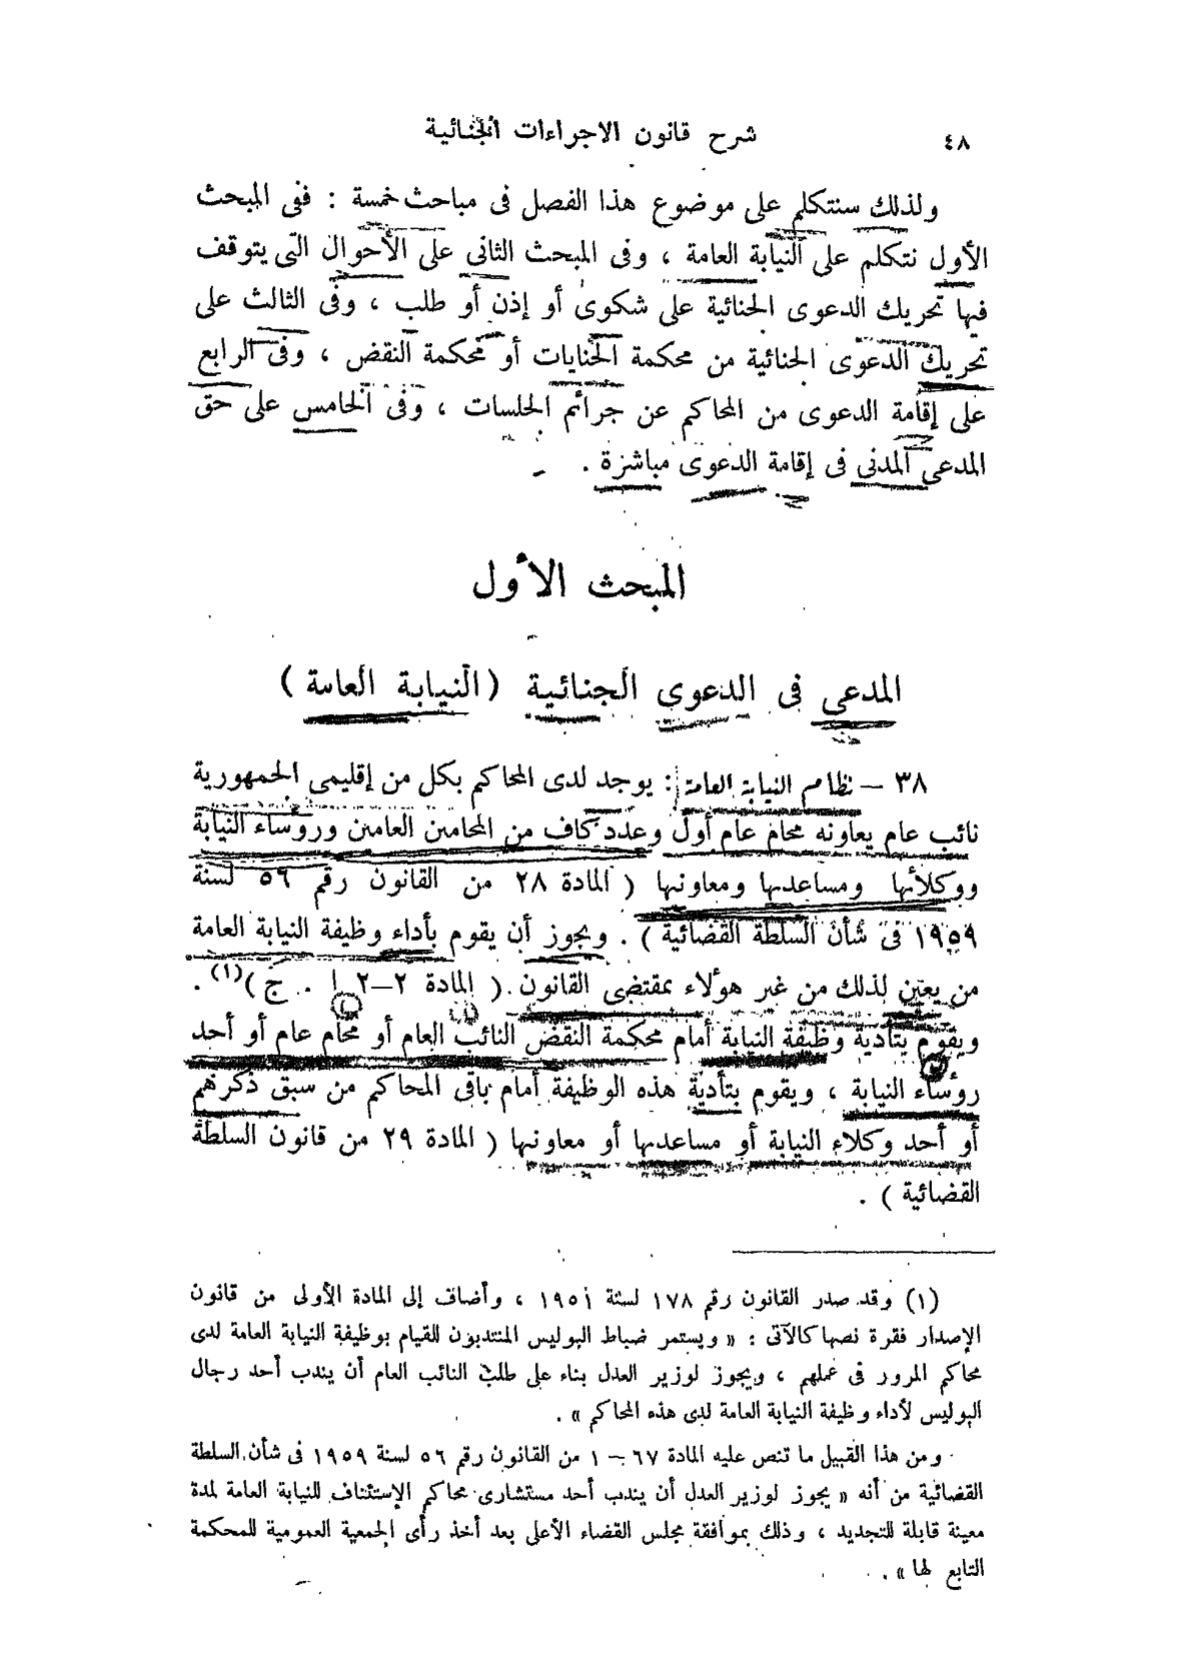 ٤٨
شرح قانون الاجراءات الجنائية
ولذلك سنتكلم على موضوع هذا الفصل فى مباحث خمسة : ففى المبحث
الأول نتكلم على النيابة العامة ، وفى المبحث الثانى على الأحوال التى يتوقف
فيها تحريك الدعوى الجنائية على شكوى أو إذن أو طلب ، وفى الثالث على
تحريك الدعوى الجنائية من محكمة الجنايات أو محكمة النقض ، وفى الرابع
على إقامة الدعوى من المحاكم عن جرائم الجلسات ، وفى الخامس على حق
المدعى المدنى فى إقامة الدعوى مباشرة .
المبحث الأول
المدعى فى الدعوى الجنائية (النيابة العامة)
٣٨ – نظام النيابة العامة : يوجد لدى المحاكم بكل من إقليمى الجمهورية
نائب عام يعاونه محام عام أول وعدد كاف من المحامين العامين وروساء النيابة
ووكلائها ومساعديها ومعاونيها ( المادة ٢٨ من القانون رقم ٥٦ لسنة
١٩٥٩ فى شأن السلطة القضائية ) . ويجوز أن يقوم بأداء وظيفة النيابة العامة
من يعين لذلك من غير هولاء بمقتضى القانون . ( المادة ٢–٢ ا . ج )(١) .
ويقوم بتأدية وظيفة النيابة أمام محكمة النقض النائب العام أو محام عام أو أحد
روساء النيابة ، ويقوم بتأدية هذه الوظيفة أمام باقى المحاكم من سبق ذكرهم
أو أحد وكلاء النيابة أو مساعديها أو معاونيها ( المادة ٢٩ من قانون السلطة
القضائية ) .
(١) وقد صدر القانون رقم ١٧٨ لسنة ١٩٥١ ، وأضاف إلى المادة الأولى من قانون
الإصدار فقرة نصها كالآتى : « ويستمر ضباط البوليس المنتدبون للقيام بوظيفة النيابة العامة لدى
محاكم المرور فى عملهم ، ويجوز لوزير العدل بناء على طلب النائب العام أن يندب أحد رجال
البوليس لأداء وظيفة النيابة العامة لدى هذه المحاكم » .
ومن هذا القبيل ما تنص عليه المادة ٦٧ – ١ من القانون رقم ٥٦ لسنة ١٩٥٩ فى شأن السلطة
القضائية من أنه « يجوز لوزير العدل أن يندب أحد مستشارى محاكم الإستئناف للنيابة العامة لمدة
معينة قابلة للتجديد ، وذلك بموافقة مجلس القضاء الأعلى بعد أخذ رأى الجمعية العمومية للمحكمة
التابع لها » .